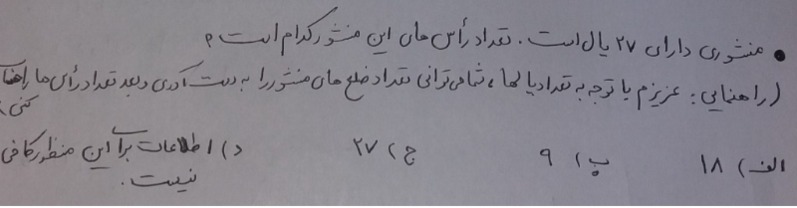 • منشوری دارای ۲۷ یال است. تعداد رأس های این منشور کدام است؟
(راهنمایی: عزیزم با توجه به تعداد یالها، شما می توانی تعداد ضلع های منشور را به دست آوری و بعد تعداد رأس ها را
کنی)
الف) ۱۸ ب) ۹ ج) ۲۷ د) اطلاعات برای این منظور کافی
نیست.